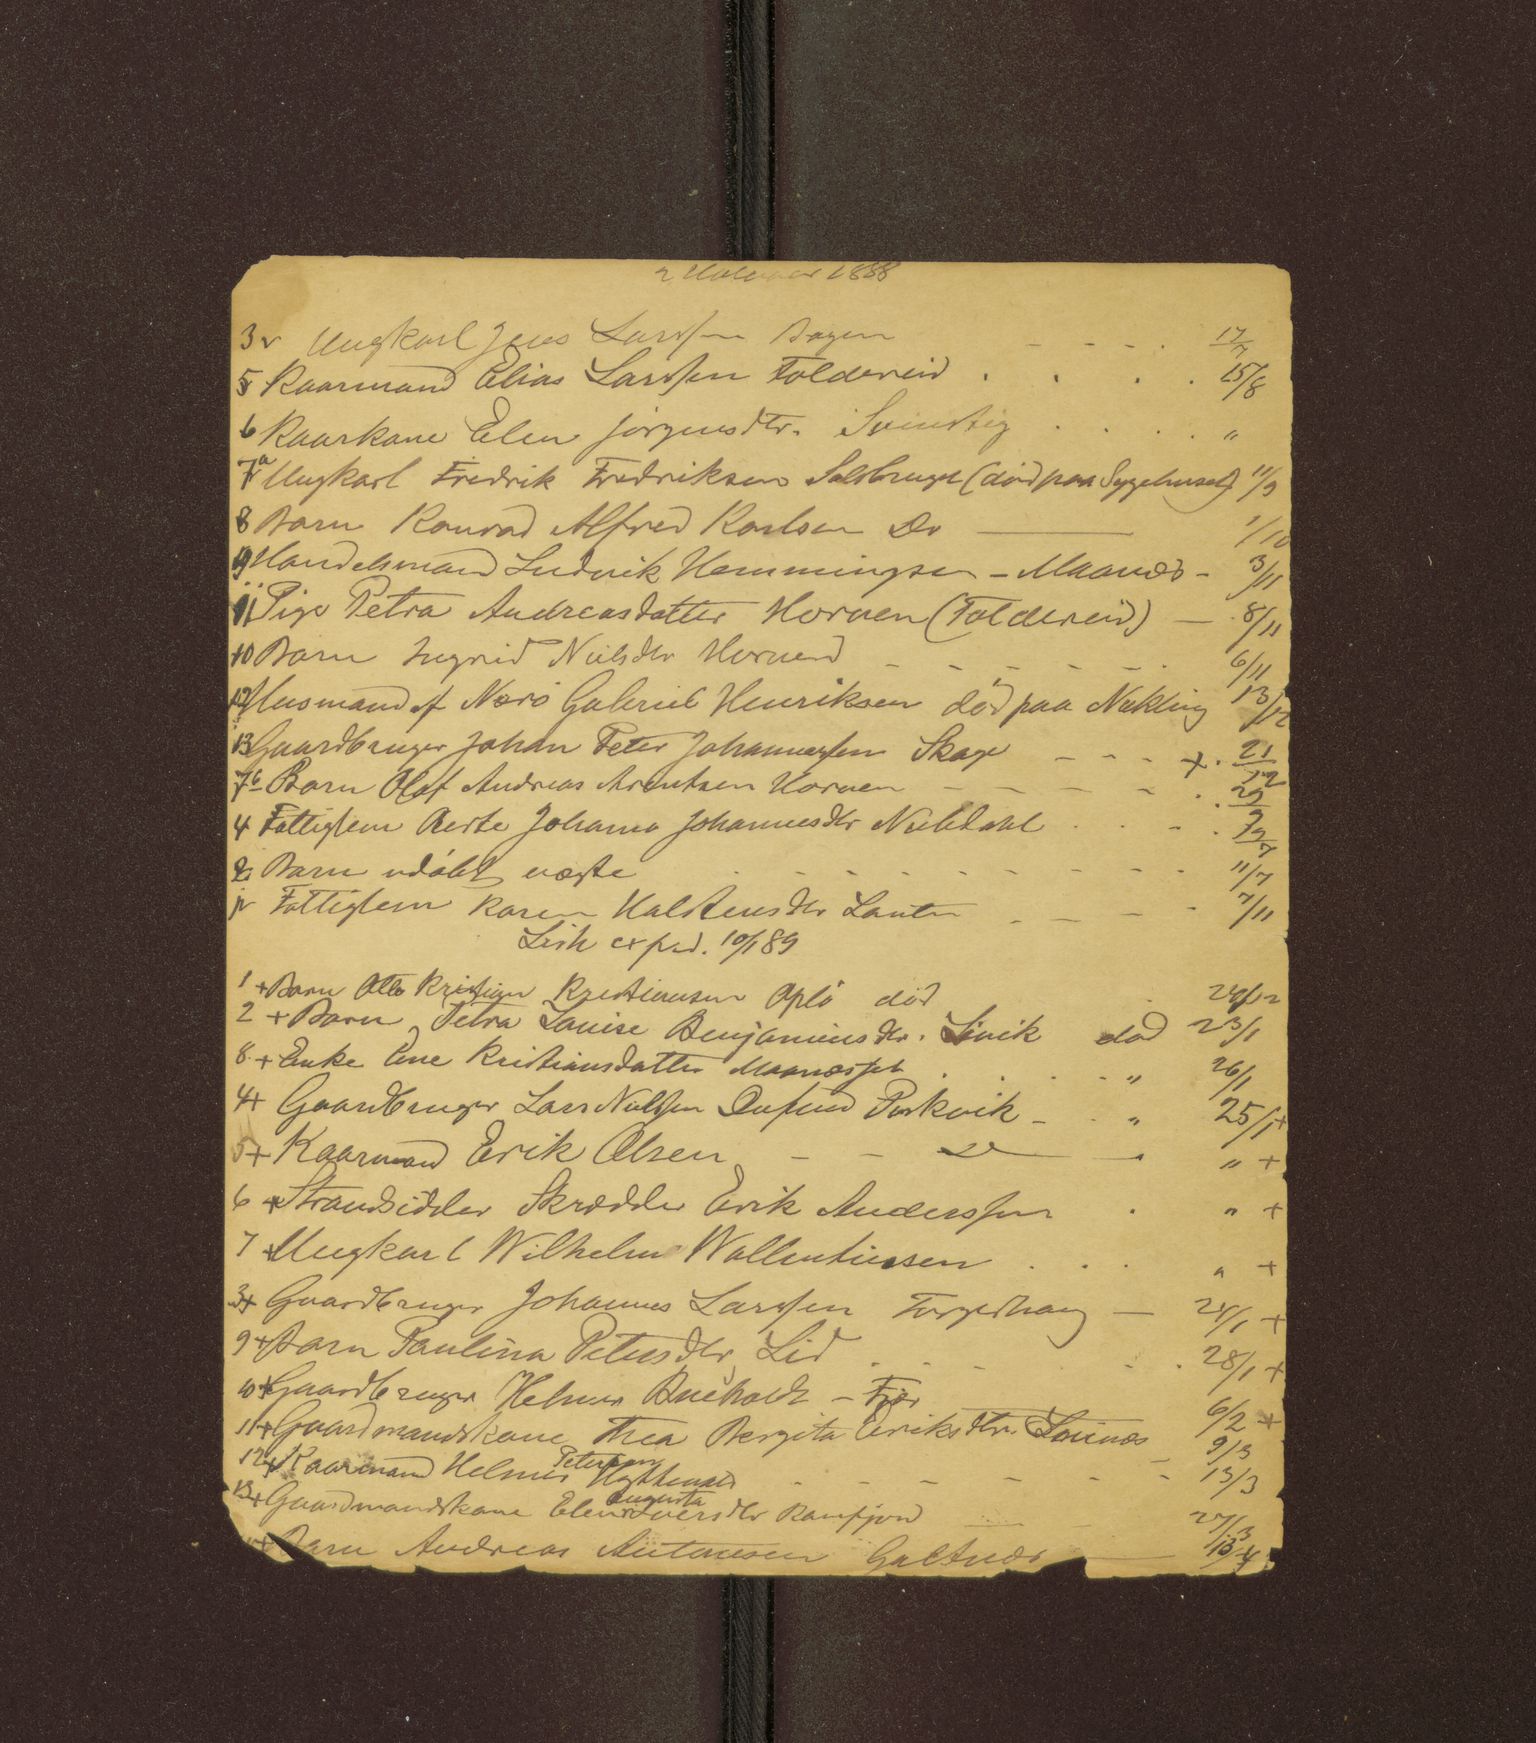 2 Halvaar 1888
3 Ungkarl Jens Larssen Dagen - - - - 17/7
5 Kaarmand Elias Larssen Foldereid . . . . 15/8
6 Kaarkone Elen Jørgensdtr. Svinstig . . . . "
7a Ungkarl Fredrik Fredriksen Salsbruget (død paa Sygehuset) 11/9
8 Barn Konrad Alfred Karlsen Do — 1/10
9 Handelsmand Ludvik Hemmingsen - Maanæs - 3/11
11 Pige Petra Andreasdatter Horven (Foldereid) — 8/11
10 Barn Ingrid Nielsdtr Horven - - - - - 6/11
12 Husmand af Nærø Gabriel Henriksen død paa Nukling 13/12
13 Gaardbruger Johan Peter Johannessen Skage - - - +. 21/12
7b Barn Olaf Andreas Arentsen Horven - - - - - 29/9
4 Fattiglem Berte Johanna Johannesdtr Nubdahl . . - . 29/7
2 Barn udøbt uægte - - - - - - - 11/7
Fattiglem Karen Halstensdtr Lauten - - - - 7/11
Lish exped. 10/1 89
1 + Barn Otto Kristian Kristiansen Oplø død 24/12
2 + Barn Petra Louise Benjaminsdtr. Sivik død 23/1
8 + Enke Ane Kristiansdatter Maanæsset . . . . " 26/1
4 + Gaardbruger Lars Nielssen Buføud Purkvik - . " 25/1 +
5 + Kaarmand Erik Olsen - - Do — . " +
6 + Strandsidder Skrædder Erik Anderssen . " +
7 + Ungkarl Wilhelm Wallentinssen . . . " +
3 + Gaardbruger Johannes Larssen Torgedhaug — 24/1 +
9 + Barn Paulina Petersdtr Lid . . - - . 28/1 +
10 + Gaardbruger Helmer Bucholdt - Fjær 6/2 +
11 + Gaardmandskone Thea Bergita Eriksdtr. Sørinæs - 9/3
12 + Kaarmand Helmer Petersen - - - - - 13/3
13 + Gaardmandskone Elen Augusta Iversdtr Ramfjord — 27/3
+ Barn Andreas Antonsen Galtnæs — 13/4